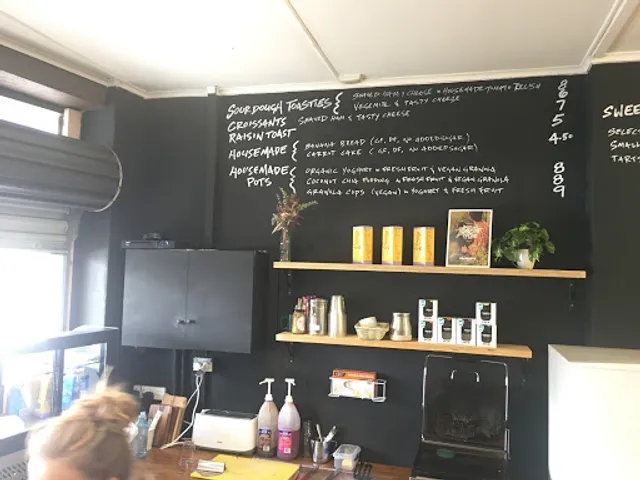 SOURDOUGH TOASTIES { SHAVED HAM & CHEESE w HOUSEMADE TOMATO RELISH 8
VEGEMITE & TASTY CHEESE 6
CROISSANTS SHAVED HAM & TASTY CHEESE 7
RAISIN TOAST 5
HOUSEMADE { BANANA BREAD (GF, DF, NO ADDED SUGAR) 4.50
CARROT CAKE (GF, DF, NO ADDED SUGAR)
HOUSEMADE POTS { ORGANIC YOGHURT w FRESH FRUIT & VEGAN GRANOLA 8
COCONUT CHIA PUDDING w FRESH FRUIT & VEGAN GRANOLA 8
GRANOLA CUPS (VEGAN) w YOGHURT & FRESH FRUIT 9
SWEE
SELEC
SMALL
TARTS